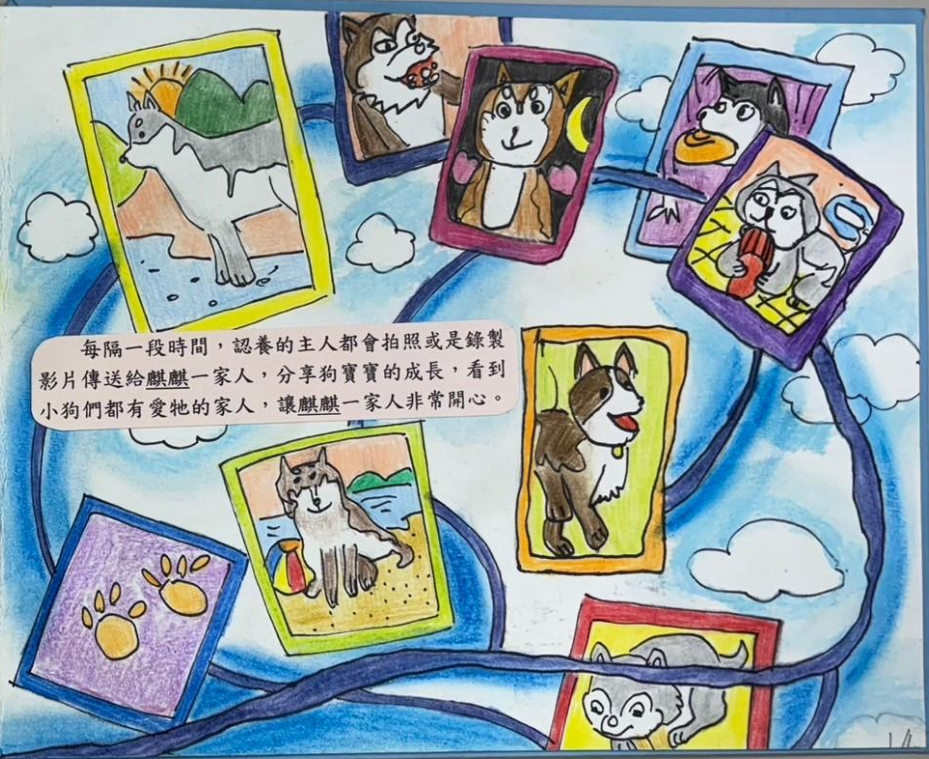 每隔一段時間，認養的主人都會拍照或是錄製
影片傳送給麒麒一家人，分享狗寶寶的成長，看到
小狗們都有愛牠的家人，讓麒麒一家人非常開心。